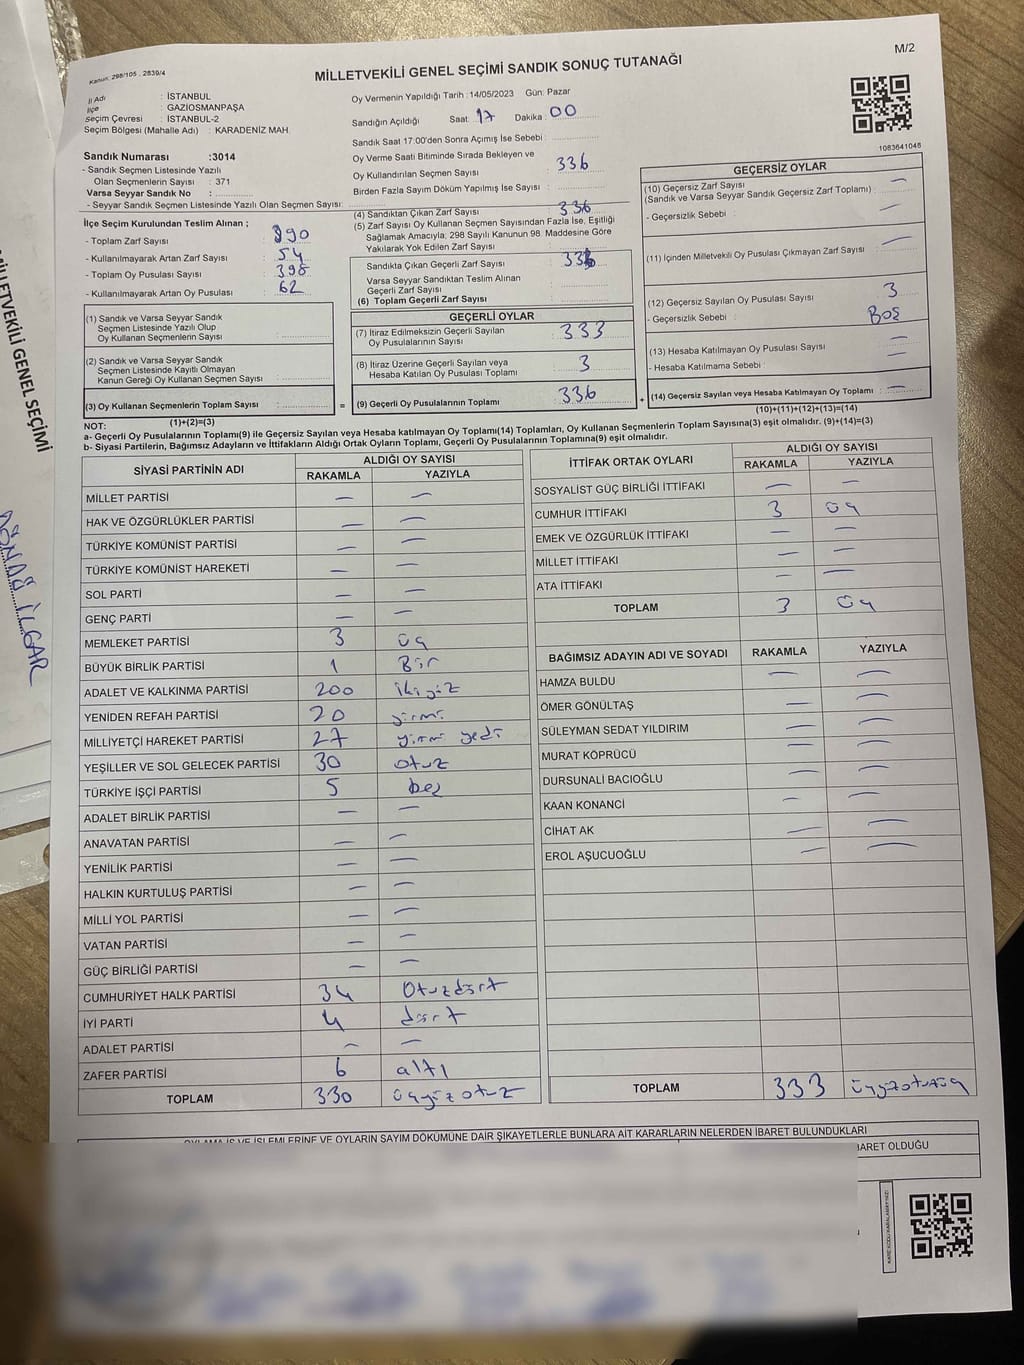 M/2
Kanun: 298/105 , 2839/4
MİLLETVEKİLİ GENEL SEÇİMİ SANDIK SONUÇ TUTANAĞI
İl Adı : İSTANBUL
İlçe : GAZİOSMANPAŞA
Seçim Çevresi : İSTANBUL-2
Seçim Bölgesi (Mahalle Adı) : KARADENİZ MAH.
Oy Vermenin Yapıldığı Tarih :14/05/2023 Gün: Pazar
Sandığın Açıldığı Saat: 17 Dakika: 00
Sandık Saat 17:00'den Sonra Açımış İse Sebebi :
Oy Verme Saati Bitiminde Sırada Bekleyen ve
Oy Kullandırılan Seçmen Sayısı : 336
Birden Fazla Sayım Döküm Yapılmış İse Sayısı :
1083641046
Sandık Numarası :3014
- Sandık Seçmen Listesinde Yazılı
Olan Seçmenlerin Sayısı : 371
Varsa Seyyar Sandık No :
- Seyyar Sandık Seçmen Listesinde Yazılı Olan Seçmen Sayısı:
İlçe Seçim Kurulundan Teslim Alınan ;
- Toplam Zarf Sayısı : 390
- Kullanılmayarak Artan Zarf Sayısı : 54
- Toplam Oy Pusulası Sayısı : 398
- Kullanılmayarak Artan Oy Pusulası : 62
(1) Sandık ve Varsa Seyyar Sandık
Seçmen Listesinde Yazılı Olup
Oy Kullanan Seçmenlerin Sayısı :
(2) Sandık ve Varsa Seyyar Sandık
Seçmen Listesinde Kayıtlı Olmayan
Kanun Gereği Oy Kullanan Seçmen Sayısı :
(3) Oy Kullanan Seçmenlerin Toplam Sayısı :
(4) Sandıktan Çıkan Zarf Sayısı : 336
(5) Zarf Sayısı Oy Kullanan Seçmen Sayısından Fazla İse, Eşitliği
Sağlamak Amacıyla; 298 Sayılı Kanunun 98. Maddesine Göre
Yakılarak Yok Edilen Zarf Sayısı :
Sandıkta Çıkan Geçerli Zarf Sayısı : 336
Varsa Seyyar Sandıktan Teslim Alınan
Geçerli Zarf Sayısı :
(6) Toplam Geçerli Zarf Sayısı :
GEÇERLİ OYLAR
(7) İtiraz Edilmeksizin Geçerli Sayılan
Oy Pusulalarının Sayısı : 333
(8) İtiraz Üzerine Geçerli Sayılan veya
Hesaba Katılan Oy Pusulası Toplamı : 3
= (9) Geçerli Oy Pusulalarının Toplamı : 336
GEÇERSİZ OYLAR
(10) Geçersiz Zarf Sayısı : —
(Sandık ve Varsa Seyyar Sandık Geçersiz Zarf Toplamı)
- Geçersizlik Sebebi : —
(11) İçinden Milletvekili Oy Pusulası Çıkmayan Zarf Sayısı : —
(12) Geçersiz Sayılan Oy Pusulası Sayısı : 3
- Geçersizlik Sebebi : BOŞ
(13) Hesaba Katılmayan Oy Pusulası Sayısı : —
- Hesaba Katılmama Sebebi : —
+ (14) Geçersiz Sayılan veya Hesaba Katılmayan Oy Toplamı : —
NOT: (1)+(2)=(3)
(10)+(11)+(12)+(13)=(14)
a- Geçerli Oy Pusulalarının Toplamı(9) ile Geçersiz Sayılan veya Hesaba katılmayan Oy Toplamı(14) Toplamları, Oy Kullanan Seçmenlerin Toplam Sayısına(3) eşit olmalıdır. (9)+(14)=(3)
b- Siyasi Partilerin, Bağımsız Adayların ve İttifakların Aldığı Ortak Oyların Toplamı, Geçerli Oy Pusulalarının Toplamına(9) eşit olmalıdır.
SİYASİ PARTİNİN ADI ALDIĞI OY SAYISI
RAKAMLA YAZIYLA
MİLLET PARTİSİ — —
HAK VE ÖZGÜRLÜKLER PARTİSİ — —
TÜRKİYE KOMÜNİST PARTİSİ — —
TÜRKİYE KOMÜNİST HAREKETİ — —
SOL PARTİ — —
GENÇ PARTİ — —
MEMLEKET PARTİSİ 3 üç
BÜYÜK BİRLİK PARTİSİ 1 Bir
ADALET VE KALKINMA PARTİSİ 200 ikiyüz
YENİDEN REFAH PARTİSİ 20 yirmi
MİLLİYETÇİ HAREKET PARTİSİ 27 yirmi yedi
YEŞİLLER VE SOL GELECEK PARTİSİ 30 otuz
TÜRKİYE İŞÇİ PARTİSİ 5 beş
ADALET BİRLİK PARTİSİ — —
ANAVATAN PARTİSİ — —
YENİLİK PARTİSİ — —
HALKIN KURTULUŞ PARTİSİ — —
MİLLİ YOL PARTİSİ — —
VATAN PARTİSİ — —
GÜÇ BİRLİĞİ PARTİSİ — —
CUMHURİYET HALK PARTİSİ 34 Otuzdört
İYİ PARTİ 4 dört
ADALET PARTİSİ — —
ZAFER PARTİSİ 6 altı
TOPLAM 330 üçyüz otuz
İTTİFAK ORTAK OYLARI ALDIĞI OY SAYISI
RAKAMLA YAZIYLA
SOSYALİST GÜÇ BİRLİĞİ İTTİFAKI — —
CUMHUR İTTİFAKI 3 üç
EMEK VE ÖZGÜRLÜK İTTİFAKI — —
MİLLET İTTİFAKI — —
ATA İTTİFAKI — —
TOPLAM 3 üç
BAĞIMSIZ ADAYIN ADI VE SOYADI RAKAMLA YAZIYLA
HAMZA BULDU — —
ÖMER GÖNÜLTAŞ — —
SÜLEYMAN SEDAT YILDIRIM — —
MURAT KÖPRÜCÜ — —
DURSUNALİ BACIOĞLU — —
KAAN KONANCİ — —
CİHAT AK — —
EROL AŞUCUOĞLU — —
TOPLAM 333 üçyüzotuzüç
OYLAMA İŞ VE İŞLEMLERİNE VE OYLARIN SAYIM DÖKÜMÜNE DAİR ŞİKAYETLERLE BUNLARA AİT KARARLARIN NELERDEN İBARET BULUNDUKLARI
BARET OLDUĞU
MİLLETVEKİLİ GENEL SEÇİMİ
İLGAR